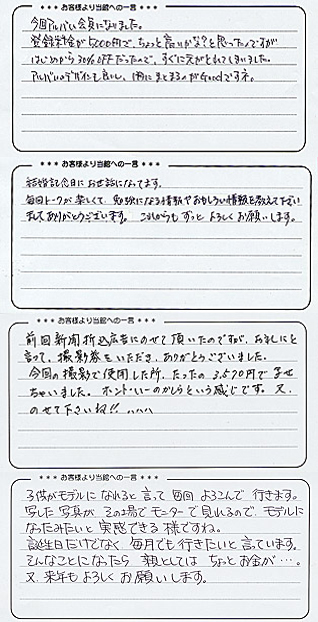 *** お客様より当館への一言 ***
今回アルバム会員になりました。
登録料金が5,000円で、ちょっと高いかな?と思ったんですが
はじめから30%OFFだったので、すぐに元がとれてしまいました。
アルバムのデザインも良いし、1冊にまとまるのがGoodですネ。
*** お客様より当館への一言 ***
結婚記念日にお世話になってます。
毎回トークが楽しくて、勉強になる情報やおもしろい情報を教えて下さい
ましてありがとうございます。これからもずっとよろしくお願いします。
*** お客様より当館への一言 ***
前回新聞折込広告にのせて頂いたのですが、お礼にと
言って、撮影券をいただき、ありがとうございました。
今回の撮影で使用した所、たったの3,570円で済せ
ちゃいました。ホントいーのかしらという感じです。又、
のせて下さいね!!ハハハ
*** お客様より当館への一言 ***
子供がモデルになれると言って毎回よろこんで行きます。
写した写真がその場でモニターで見れるので、モデルに
なったみたいと実感できる様ですね。
誕生日だけでなく、毎月でも行きたいと言ています。
そんなことになったら親としてはちょっとお金が…。
又、来年もよろしくお願いします。